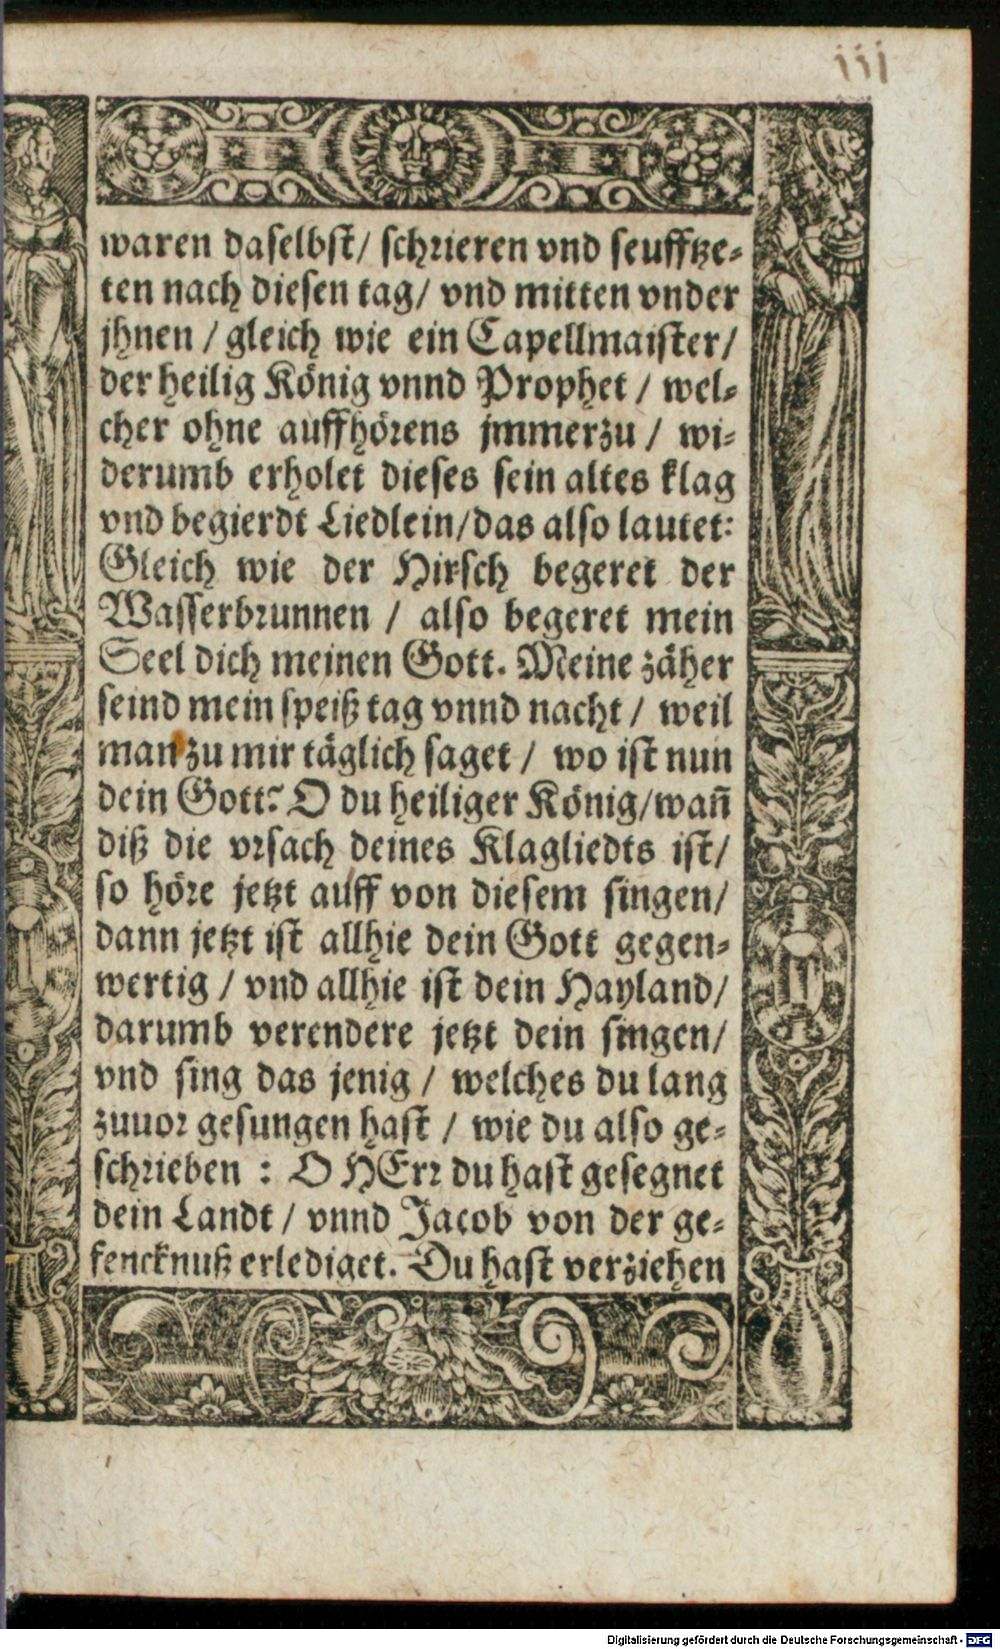 iii
waren daselbst/ schrieren vnd seufftze-
ten nach diesen tag/ vnd mitten vnder
jhnen / gleich wie ein Capellmaister/
der heilig König vnnd Prophet / wel-
cher ohne auffhörens jmmerzu / wi-
derumb erholet dieses sein altes klag
vnd begierdt Liedlein/das also lautet:
Gleich wie der Hirsch begeret der
Wasserbrunnen / also begeret mein
Seel dich meinen Gott. Meine zäher
seind mein speiß tag vnnd nacht / weil
man zu mir täglich saget / wo ist nun
dein Gott? O du heiliger König/wañ
diß die vrsach deines Klagliedts ist/
so höre jetzt auff von diesem singen/
dann jetzt ist allhie dein Gott gegen-
wertig / vnd allhie ist dein Hayland/
darumb verendere jetzt dein singen/
vnd sing das jenig / welches du lang
zuuor gesungen hast / wie du also ge-
schrieben : O HErr du hast gesegnet
dein Landt / vnnd Jacob von der ge-
fencknuß erlediget. Du hast verziehen
Digitalisierung gefördert durch die Deutsche Forschungsgemeinschaft - DFG